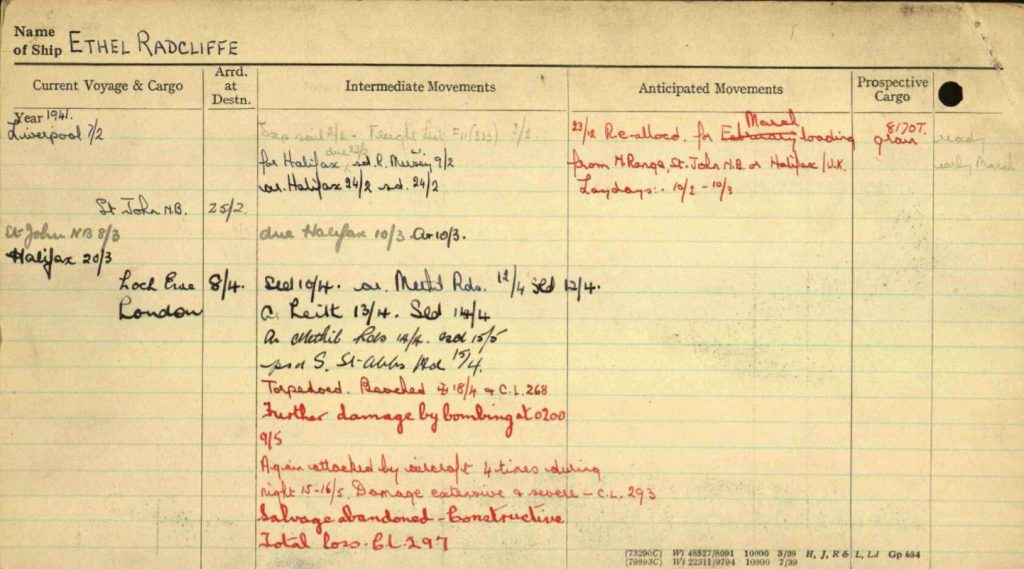 Name
of Ship ETHEL RADCLIFFE
Current Voyage & Cargo
Arrd.
at
Destn.
Intermediate Movements
Anticipated Movements
Prospective
Cargo
Year 1941.
Liverpool 7/2
for Halifax sd. R. Mersey 9/2
ar. Halifax 24/2 sd. 24/2
23/12 Re-allocd. for February March loading
from N. Range, St. John N.B. or Halifax / U.K.
Laydays:- 10/2 - 10/3
8170T.
grain
ready
early March
St John N.B. 25/2.
St John NB 8/3 due Halifax 10/3. ar 10/3.
Halifax 20/3
Loch Ewe 8/4. Sld 10/4. ar. Methil Rds. 12/4 sld 12/4.
London a. Leith 13/4. Sld 14/4
ar Methil Rds 14/4. ssd 15/5
psd S. St. Abbs Hd 15/4.
Torpedoed. Beached 18/4 C.L. 268
Further damage by bombing at 0200
9/5
Again attacked by aircraft 4 times during
night 15-16/5. Damage extensive & severe - C.L. 293
Salvage abandoned - Constructive
Total loss. CL 297
(73290C) Wt 48527/8091 10000 3/39 H, J, R & L, Ld Gp 684
(79893C) Wt 22311/9794 10000 7/39